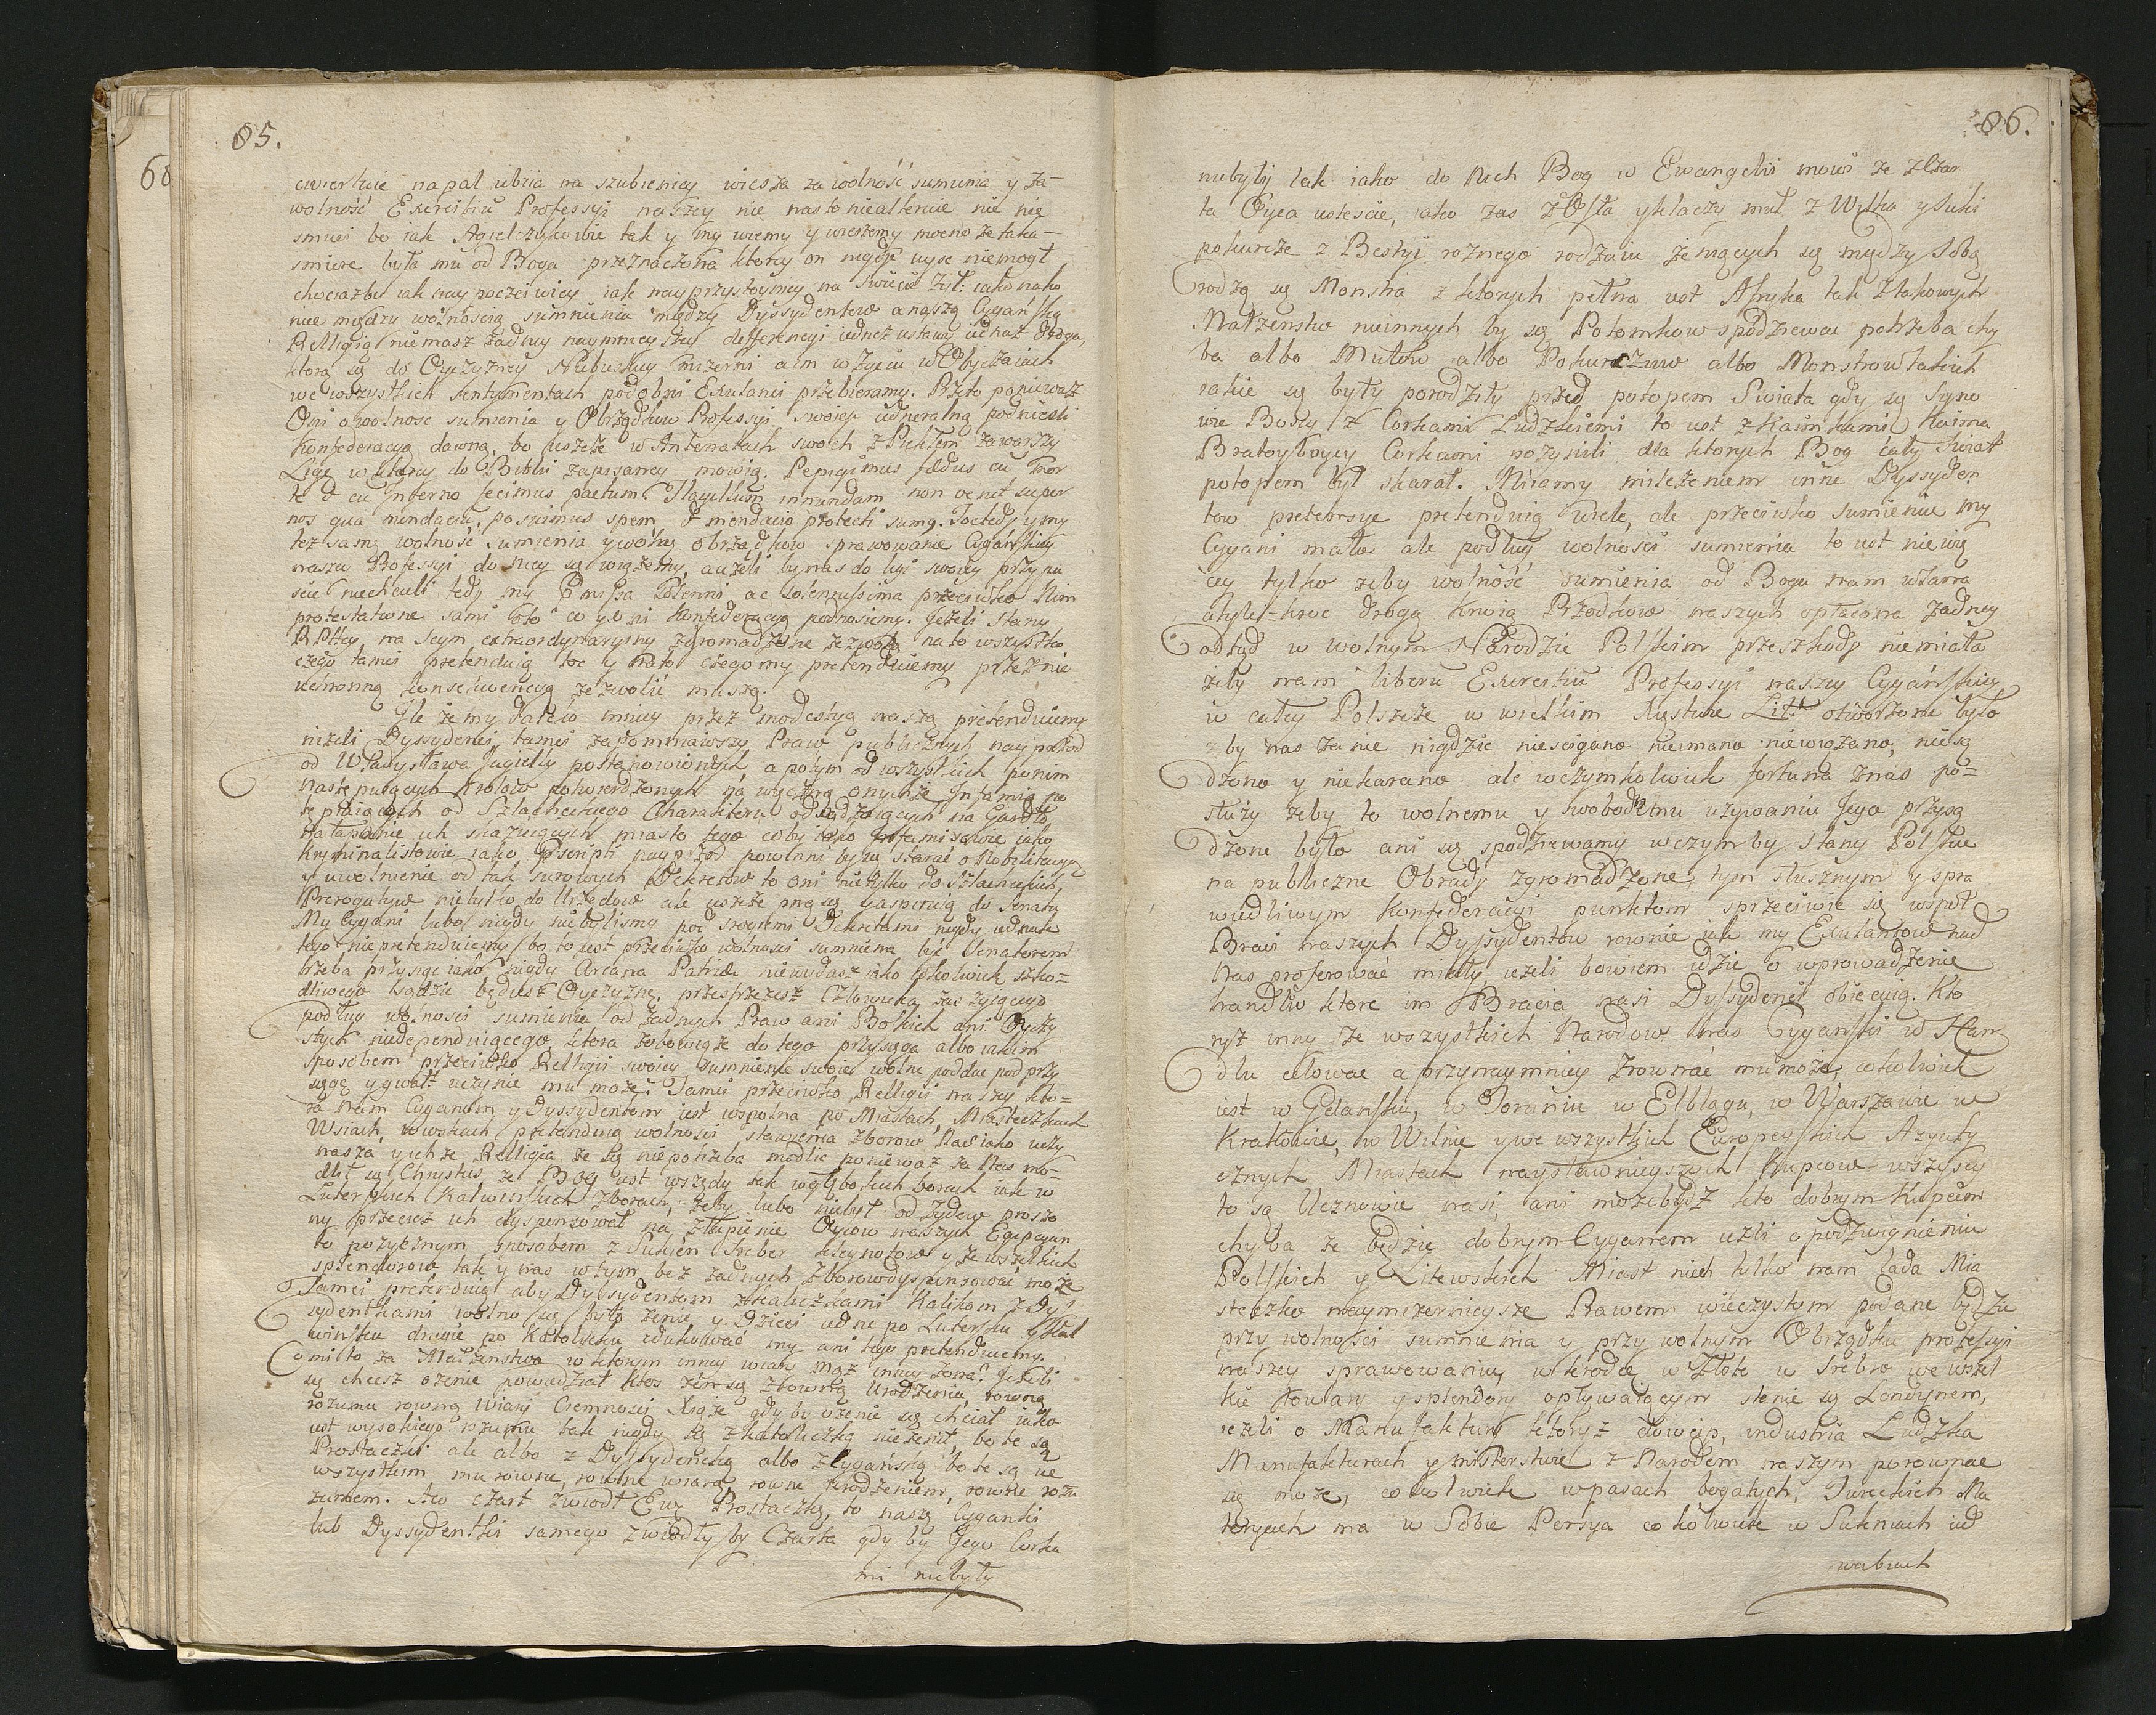 85.
68
cwiertuie na pal ubiia na szubienicy wiesza za wolność sumnia y za-
wolność Exercitiu Professyi naszey nie nasto niealterue nic nie
smuci bo iak Anielczykowie tak y my wiemy y wierzemy mocno że taka-
smierc była mu od Boga przeznaczona ktorey on nigdy uysc niemogł
chociażby iak nay poczciwiey iak nay przystoyniey na Swiecie żył: iako nako
niec między wolnoscią sumnienia między Dyssydentow a naszą Cygańską
Relligią niemasz żadney naymnieyszey defferencyi iedneż ustawy iednaż droga,
ktorą się do Oyczyzney Niebieskiey mizerni a im w życiu w Obyczaiach
we wszystkich sentymentach podobni Exulanci przebieramy. Przeto ponieważ
Oni o wolnosc sumnienia y Obrządkow Professyi swoiey iedneralną podniesli
Konfederacyą dawną, bo ieszcze w Antenatach swoich z Piekłem zawarszy
Ligę w ktorey do Biblii zapisaney mowią. Pepigimus fœdus cu mor
te & cu Inferno fecimus pactum. Flagellum innundans non veniet super
nos quia mendaciu, posuimus spem, & mendacio protecti sumq. Toc tedy y my
też samę wolność sumienia y wolne obrządkow sprawowanie Cygańskiey
naszey Professyi do nicy się wiążemy, a ieżeli by nas do ligi swoiey przypu
scic niechcieli tedy my Præmissa Solenni ac solennissima przeciwko Nim
protestatione sami o to co y oni Konfederacyą podnosiemy. Jeżeli Stany
RPltey na Seym extraordynaryiny zgromadzone zezwolą na to wszystko
czego tamci pretenduią toc y nato czego my pretenduiemy przez nie
uchronną konsekwencyą zezwolić muszą.
Ile że my daleko mniey przez modestyą naszą pretenduiemy
niżeli Dyssydenci, tamci zapomniawszy Praw publicznych nayprzod
od Władysława Jagiełły postanowionych, a potym od wszystkich ponim
następuiących Krolow potwierdzonych na wieczną onychże Infamią po
tępiaiących od Szlacheckiego Charakteru odsądzaiących na Gardło
natapanie ich skazuiących miasto tego coby iako Infamisowie iako
Kryminalistowie iako Pscripti nayprzod powinni by się starać o Nobilitacyą
y uwolnienie od tak surowych Dekretow to oni nie tylko do Szlacheckich
Prerogatyw nietylko do Urzędow ale ieszcze pną się y aspiruią do Senatu
My Cygani lubo nigdy niebylismy pod srogiemi Dekretami nigdy iednak
tego nie pretenduiemy, bo to iest przeciwko wolnosci sumnienia być Senatorem
trzeba przysięc iako nigdy Arcana Patriæ niewydasz iako cokolwiek szko-
dliwego bądzie będziesz Oyczyznę. przestrzeżesz Człowieka zas żyiącego
podług wolnosci sumienia od żadnych Praw ani Boskich ani Oyczy
stych niedependuiącego, ktora zobowiąże do tego przysięga albo iakim
sposobem przeciwko Relligii swoiey sumnienie swoie wolne poddac pod przy
sięgę y gwałt uczynic mu może? Tamci przeciwko Relligii naszey kto-
ra nam Cyganom y Dyssydentom iest wspolna po Miastach, Miasteczkach
Wsiach, wioskach pretenduią wolnosci stawienia zborow Nas iako uczy
nasza y ichże Relligia że się niepotrzeba modlic ponieważ za Nas mo-
dlił się Chrystus, że BOG iest wszędy tak w głębokich borach iak w
Luterskich Kalwinskich Zborach, żeby lubo niebył od Żydow proszo
ny przecież ich dyspensował na złupienie Oycow naszych Egipcyan
to pozycznym sposobem z Sukien Sreber kleynotow y ze wszelkich
splendorow tak y nas w tym, bez żadnych zborow dyspensować może
Tamci pretenduią aby Dyssydentom z Katoliczkami Katolikom z Dys
sydentkami wolno się było żenic y Dzieci iedne po Lutersku y Kal
winsku drugie po Katolicku edukować my ani tego pretenduiemy.
Co mi to za Małżenstwo w ktorym inney wiary mąż inney żona? Jeżeli
się chcesz ożenic powiedział ktos żen się z rowną Urodzenia rowną
rozumu rowną Wiary Ciemnosci Xiąże gdy by ożenic się chciał iako
iest wysokiego rozumu tak nigdy się z Katoliczką nieżenił, bo te są
Prostaczki ale albo z Dyssydencką albo z Cyganską bo te są we
wszystkim mu rowne, rowne wiarą rowne urodzeniem, rowne rozu
zumem. Aw czart zwiodł Ewę Prostaczkę, to nasze Cyganki
lub Dyssydentki samego zwiodłyby Czarta gdy by Jego Corka
mi niebyły
86.
niebyły tak iako do Nich Bog w Ewangelii mowi że z Czar
ta Oyca iestescie, iako zas z Osła y klaczy muł z Wilka y suki
pokurcze z Bestyi rożnego rodzaiu żeniących się między sobą
rodzą się Monstra z ktorych pełna iest Afryka tak z takowych
Małżenstw nieinnych by się Potomkow spodziewac potrzeba chy
ba albo Mułow albo Pokurczow albo Monstrow takich
iakie się były porodziły przed potopem Swiata gdy się Syno
wie Boscy z Corkami Ludzkiemi to iest z Kaimkami Kaima
Bratoyboycy Corkami pożynili dla ktorych Bog cały Swiat
potopem był skarał. Miiamy milczeniem inne Dyssyden
tow pretensye pretenduią wiele, ale przeciwko sumieniu my
Cygani mało ale podług wolnosci sumienia to iest nie wię
cey tylko zeby wolność sumienia od Boga nam własna
atyle-kroc drogą krwią Przodkow naszych opłacona żadney
odtąd w wolnym Narodzie Polskim przeszkody niemiała
żeby nam liberu Exercitiu Professyi naszey Cygańskiey
w całey Polszcze w wielkim Xięstwie Litt otworzone było
żeby nas zanie nigdzie niescigano nieimano niewiązano, niesą
dzono y niekarano ale w czymkolwiek fortuna znas po-
służy żeby to wolnemu y swobodnemu używaniu Jego przysą
dzone było ani się spodziewamy w czymby Stany Polskie
na publiczne Obrady zgromadzone, tym słusznym y spra
wiedliwym Konfederacyi punktom sprzeciwic się wspoł
Braci naszych Dyssydentow rownie iak my Exulantow nad
Nas proferować miały ieżeli bowiem idzie o wprowadzenie
handlu ktore im Bracia nasi Dyssydenci obiecuią. Kto
ryż inny ze wszystkich Narodow nas Cyganski w Han
dlu celowac a przynaymniey zrownać mu może, cokolwiek
iest w Gdańsku, w Toruniu w Elblągu, w Warszawie w
Krakowie, w Wilnie y we wszystkich Europeyskich Azyaty
cznych Miastach naysławnieyszych Kupcow wszyscy
to są Uczniowie nasi, ani możebydz kto dobrym Kupcem
chyba że będzie dobrym Cyganem ieżli o podzwignieniu
Polskich y Litewskich Miast niech tylko nam lada Mia
steczko naymizernieysze Prawem wieczystym podane będzie
przy wolnosci sumnienia y przy wolnym Obrządku professyi
naszey sprawowaniu, wkrotce w Złoto w Srebro we wszel
kie towary y splendory opływaiącym stanie się Londynem,
ieżeli o Manufaktury ktoryż dowcip, industria Ludzka
Manufakturach y misterstwie z Narodem naszym porownac
się może, cokolwiek w pasach bogatych, Tureckich Ma
teryach ma w Sobie Persya cokolwiek w Suknach ied
wabiach